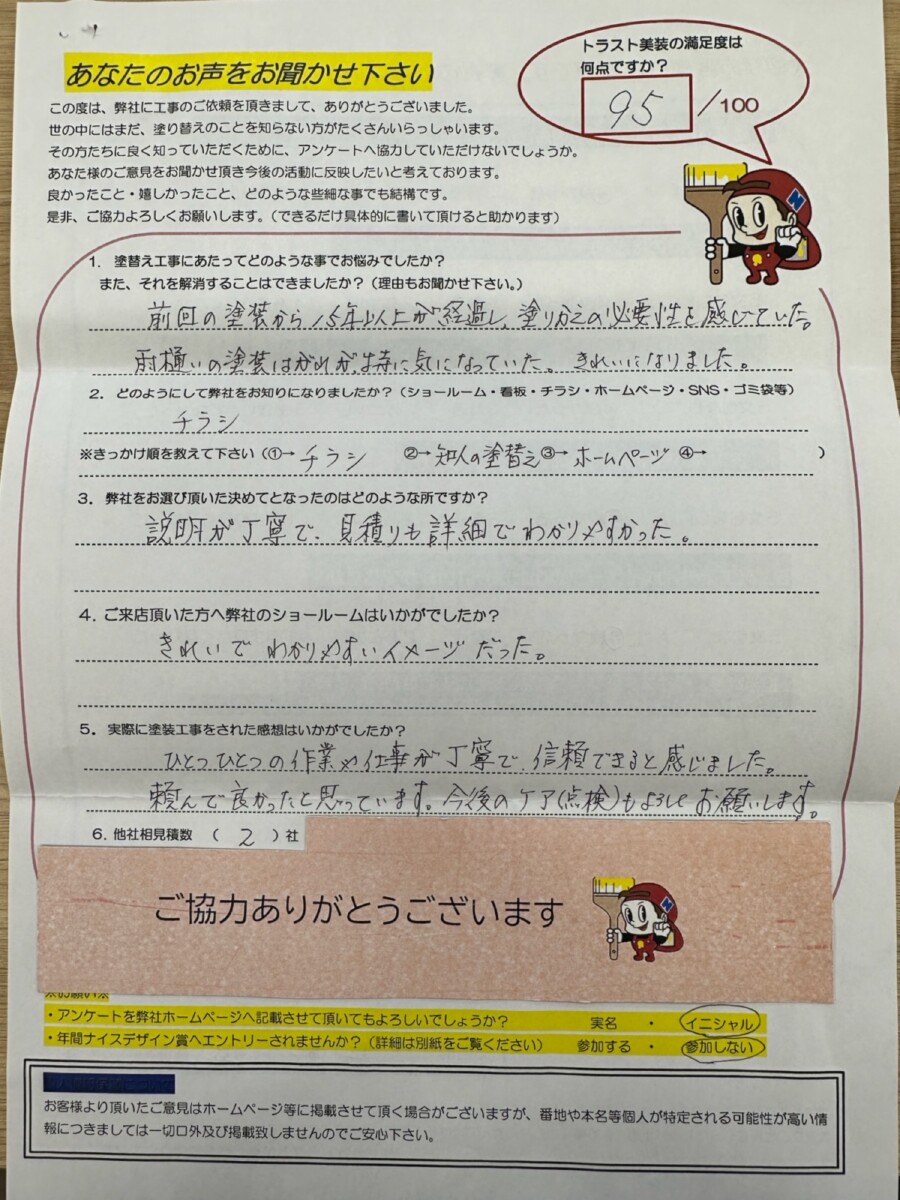 あなたのお声をお聞かせ下さい
トラスト美装の満足度は
何点ですか?
95 /100
この度は、弊社に工事のご依頼を頂きまして、ありがとうございました。
世の中にはまだ、塗り替えのことを知らない方がたくさんいらっしゃいます。
その方たちに良く知っていただくために、アンケートへ協力していただけないでしょうか。
あなた様のご意見をお聞かせ頂き今後の活動に反映したいと考えております。
良かったこと・嬉しかったこと、どのような些細な事でも結構です。
是非、ご協力よろしくお願いします。(できるだけ具体的に書いて頂けると助かります)
1. 塗替え工事にあたってどのような事でお悩みでしたか?
また、それを解消することはできましたか?(理由もお聞かせ下さい。)
前回の塗装から15年以上が経過し、塗りかえの必要性を感じていた。
雨樋いの塗装はがれが特に気になっていた。きれいになりました。
2. どのようにして弊社をお知りになりましたか?(ショールーム・看板・チラシ・ホームページ・SNS・ゴミ袋等)
チラシ
※きっかけ順を教えて下さい(①→チラシ ②→知人の塗替え③→ホームページ ④→ )
3. 弊社をお選び頂いた決めてとなったのはどのような所ですか?
説明が丁寧で、見積りも詳細でわかりやすかった。
4. ご来店頂いた方へ弊社のショールームはいかがでしたか?
きれいで わかりやすいイメージだった。
5. 実際に塗装工事をされた感想はいかがでしたか?
ひとつひとつの作業や仕事が丁寧で、信頼できると感じました。
頼んで良かったと思っています。今後のケア(点検)もよろしくお願いします。
6. 他社相見積数 ( 2 )社
ご協力ありがとうございます
※お願い※
・アンケートを弊社ホームページへ記載させて頂いてもよろしいでしょうか? 実名 ・ イニシャル
・年間ナイスデザイン賞へエントリーされませんか?(詳細は別紙をご覧ください) 参加する ・ 参加しない
お客様より頂いたご意見はホームページ等に掲載させて頂く場合がございますが、番地や本名等個人が特定される可能性が高い情
報につきましては一切口外及び掲載致しませんのでご安心下さい。